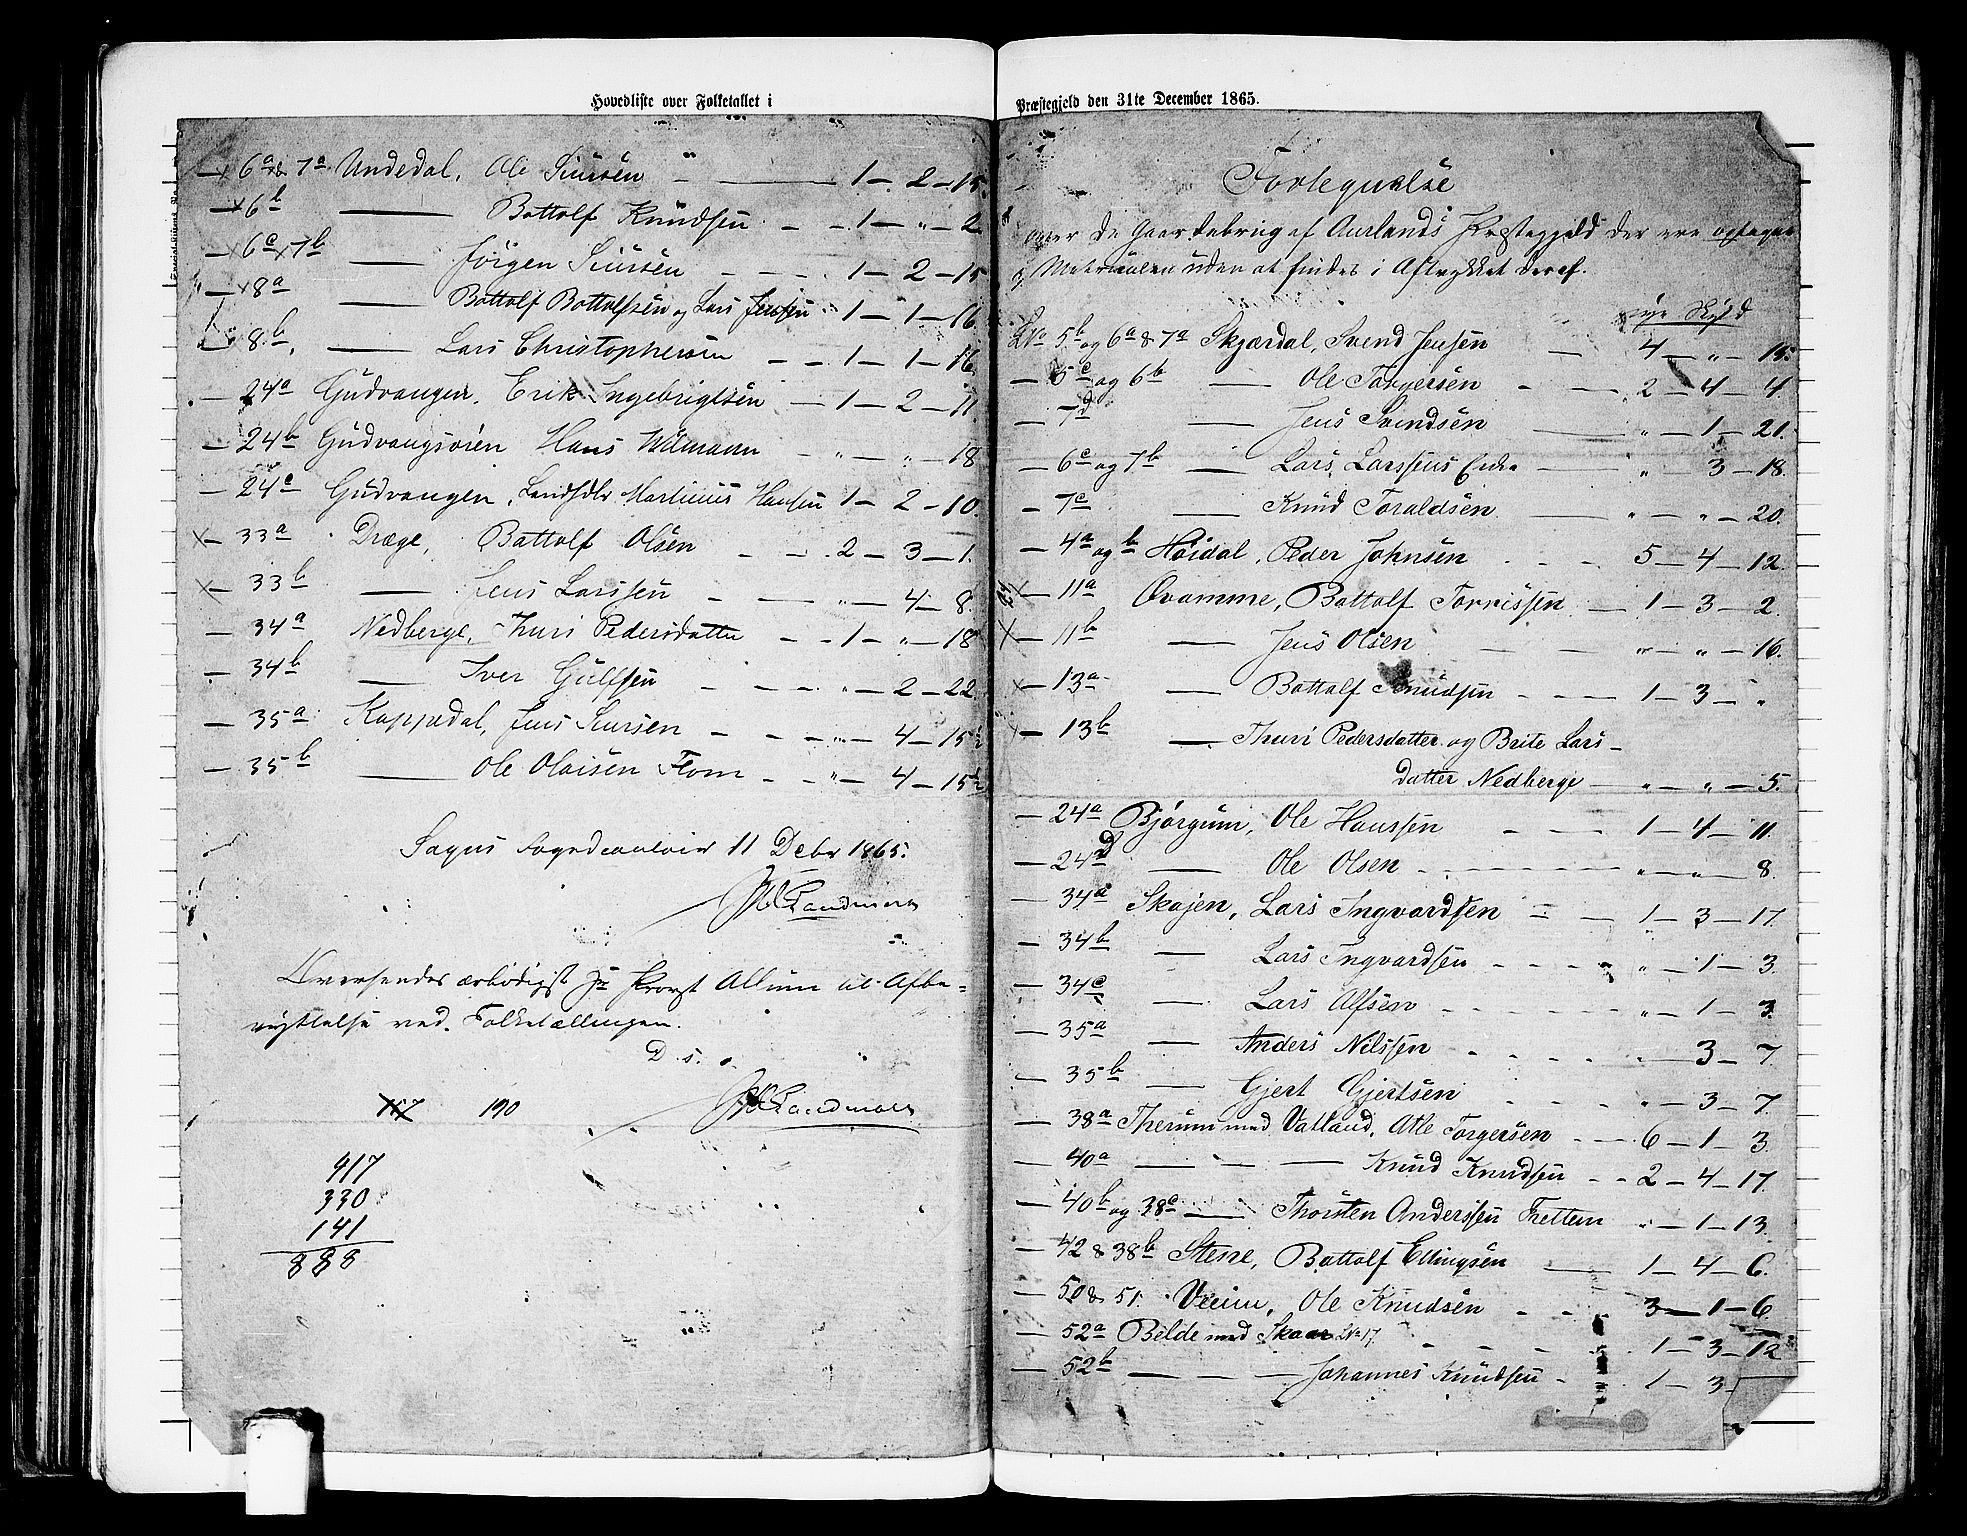 Hovedliste over Folketallet i
6a & 7a Undedal, Ole Siursen - 1 - 2 - 15.
6b — Bottolf Knudsen - 1 - " - 2
6c 7b — Jørgen Siursen - 1 - 2 - 15
8a — Bottolf Bottolfsen og Lars Jensen 1 - 1 - 16
8b. — Lars Christophersen - 1 - 1 - 16
24a Gudvangen. Erik Ingebrigtsen - 1 - 2 - 11
24b Gudvangsøren Hans Wilmann - " - " - 18
24c Gudvangen, Landhdlr Martinus Hansen 1 - 2 - 10.
33a Dræge, Bottolf Olsen - 2 - 3 - 1.
33b — Jens Larssen - " - 4 - 8.
34a Nedberge, Thuri Pedersdatter - 1 - " - 18
34b — Iver Gulfsen - " - 2 - 22
35a Kappadal, Jens Siursen - " - 4 - 15½
35b — Ole Olaisen Flom - " - 4 - 15½
Sogns Fogedcontoir 11 Debr 1865.
Oversendes ærbødigst Hr Provst Allum til Afbe=
nyttelse ved Folketællingen.
D. s.
157 190
417
330
141
888
Præstegjeld den 31te December 1865.
Fortegnelse
over de Gaardsbrug af Aurlands Præstegjeld der ere optagne
i Matriculen uden at findes i Aftrykket deraf.
nye Skyld
No 5b og 6a & 7a Skjærdal, Svend Jensen — 4 - " - 15.
5c og 6b — Ole Torgersen - 2 - 4 - 4.
7d — Jens Svendsen — " - 1 - 21.
6c og 7b — Lars Larssens Enke — " 3 - 18.
7c — Knud Toraldsen — " - " - 20.
4a og b Høidal, Peder Johnsen 5 - 4 - 12.
11a Qvamme, Bottolf Torrissen - 1 - 3 - 2.
11b — Jens Olsen — " - " - 16.
13a — Bottolf Knudsen - 1 - 3 - "
13b — Thuri Pedersdatter og Brite Lars-
datter Nedberge - " - " - 5.
24a Bjørgum, Ole Hanssen - 1 - 4 - 11.
24d — Ole Olsen - " - " - 8.
34a Skajen, Lars Ingvardsen - 1 - 3 - 17.
34b — Lars Ingvardsen - " - 1 - 3.
34c — Lars Alfsen - " - 1 - 3.
35a — Anders Nilssen - " - 3 - 7.
35b — Gjert Gjertsen - " - 3 - 7.
38a Therum med Vatland, Atle Torgersen - 6 - 1 - 3.
40a — - — Knud Knudsen - 2 - 4 - 17.
40b og 38c — Thorsten Anderssen Frettem " - 1 - 13.
42 & 38b Stene, Bottolf Ellingsen — 1 - 4 - 6.
50 & 51. Veeim, Ole Knudsen - 3 - 1 - 6.
52a Belde med Skaar No 17. - 1 - 3 - 12
52b — - — Johannes Knudsen - 1 - 3 -